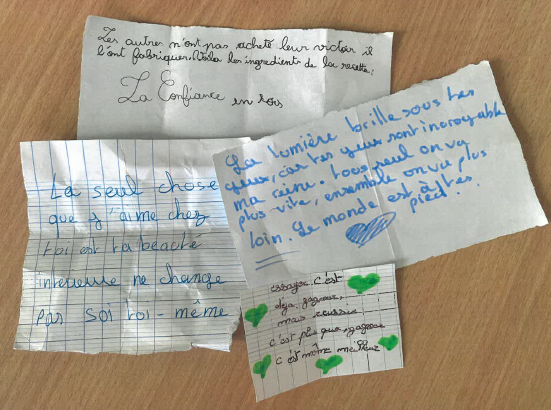 Les autres n'ont pas acheté leur victoir il
l'ont fabriquer. Voila les ingredients de la recette:
La Confiance en sois
La lumière brille sous tes
yeux, car tes yeux sont incroyable
ma reine. Tous seul on va
plus vite, ensemble on va plus
loin. Le monde est à tes
pied!
La seul chose
que j'aime chez
toi est ta beauté
interieuse ne change
pas soi toi-même
essayer c'est
deja gagner,
mais reussir
c'est plus que gagner
c'est même meilleur